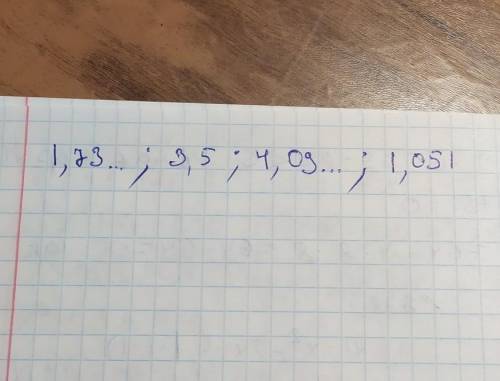 1,73...; 3,5; 4,09...; 1,051